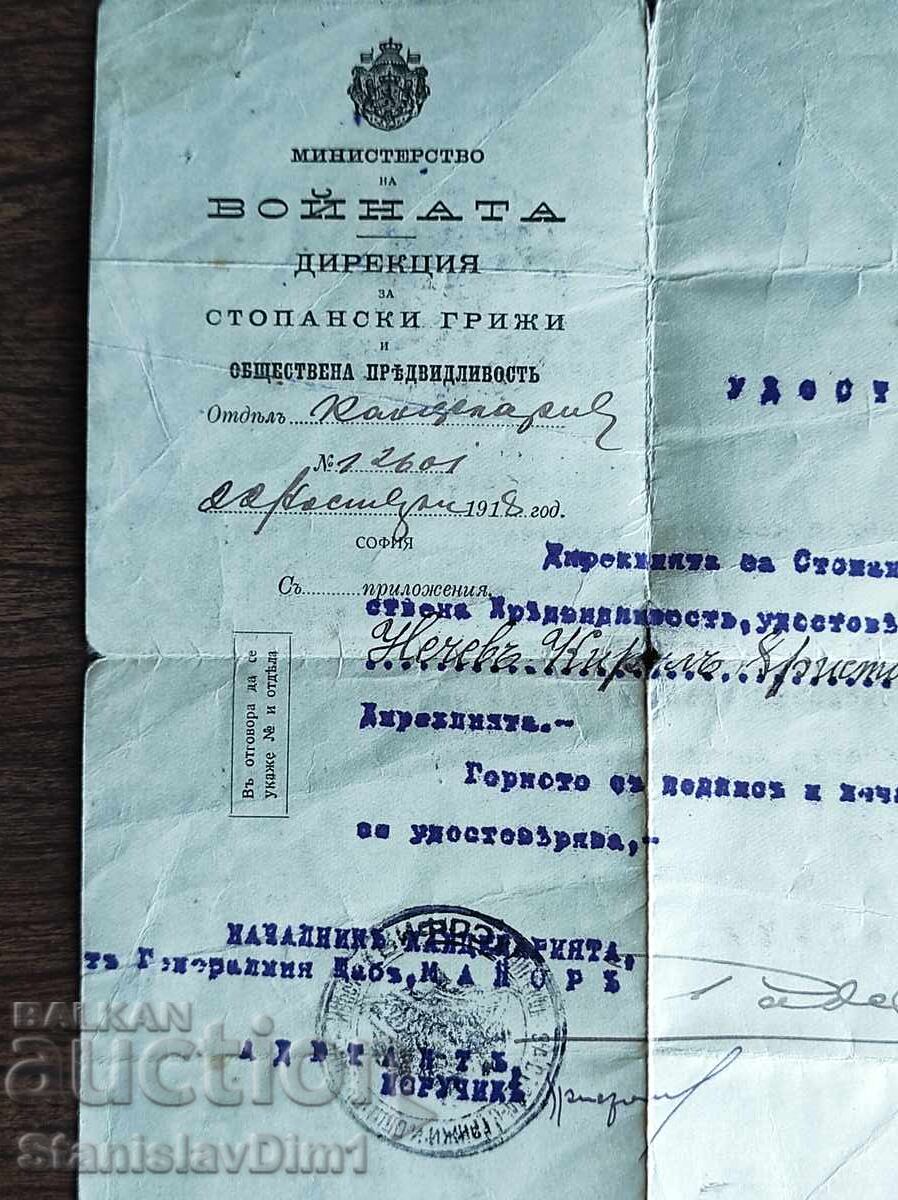 МИНИСТЕРСТВО
НА
ВОЙНАТА
ДИРЕКЦИЯ
ЗА
СТОПАНСКИ ГРИЖИ
И
ОБЩЕСТВЕНА ПРѢДВИДЛИВОСТЬ
Отдѣлъ Канцелария
№ 12601
1918 год.
СОФИЯ
Съ приложения.
Въ отговора да се
укаже № и отдѣла
УДОСТ
Дирекцията за Стопан
ствена Прѣдвидливость, удостовѣ
Нечевъ Кирилъ Христо
Дирекцията.-
Горнето съ подписъ и печа
се удостовѣрява,-
НАЧАЛНИКЪ КАНЦЕЛАРИЯТА,
тъ Генералния Щабъ, МАЙОРЪ
АДЮТАНТЪ,
ПОРУЧИКЪ
BALKAN
auction
StanislavDim1